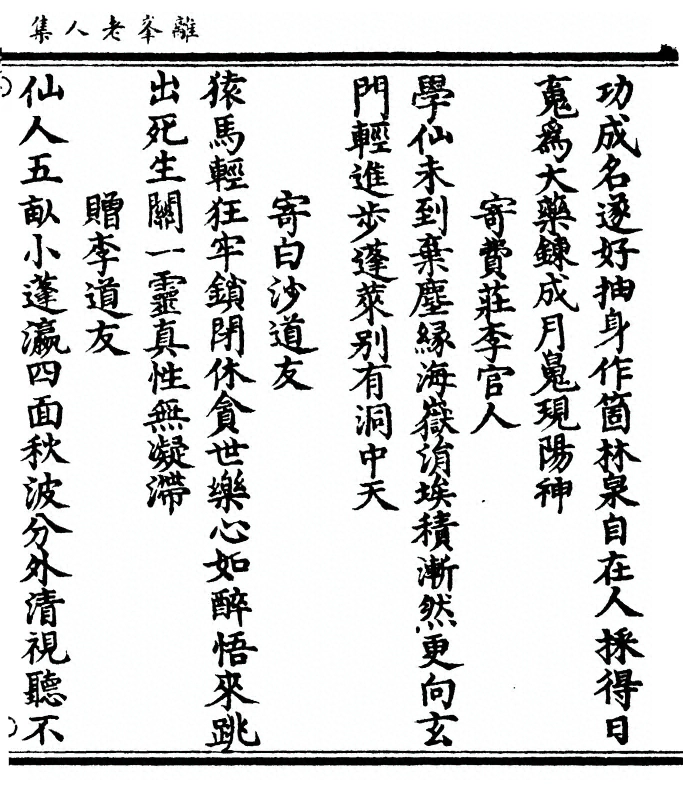 離峯老人集
功成名遂好抽身作箇林泉自在人採得日
䰟為大藥鍊成月䰟現陽神
寄費莊李官人
學仙未到棄塵緣海嶽涓埃積漸然更向玄
門輕進步蓬萊别有洞中天
寄白沙道友
猿馬輕狂牢鎖閉休貪世樂心如醉悟來跳
出死生關一靈真性無凝滯
贈李道友
仙人五畝小蓬瀛四面秋波分外清視聽不